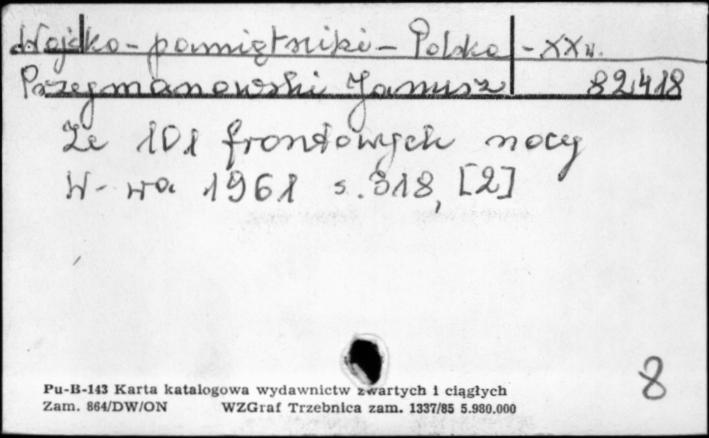 Wojsko - pamiętniki - Polska - XX w.
Przymanowski Janusz 82418
Ze 101 frontowych nocy
W-wa 1961 s. 318, [2]
8
Pu-B-143 Karta katalogowa wydawnictw zwartych i ciągłych
Zam. 864/DW/ON WZGraf Trzebnica zam. 1337/85 5.980.000